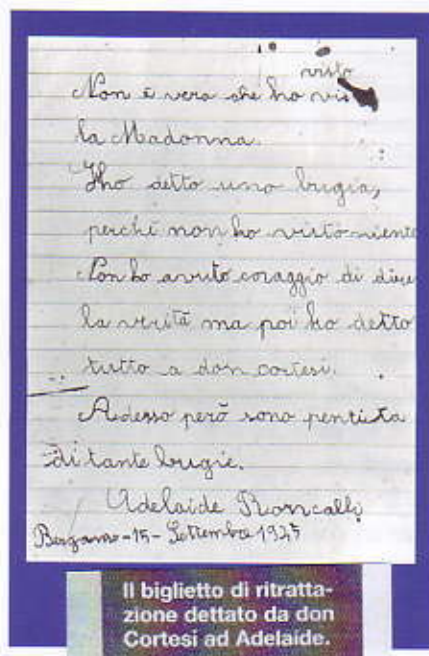 visto
Non è vero che ho vis
la Madonna.
Ho detto una bugia,
perchè non ho visto niente
Non ho avuto coraggio di dire
la verità ma poi ho detto
tutto a don cortesi.
Adesso però sono pentita
di tante bugie.
Adelaide Roncalli
Bergamo - 15 - Settembre 1945
Il biglietto di ritratta-
zione dettato da don
Cortesi ad Adelaide.